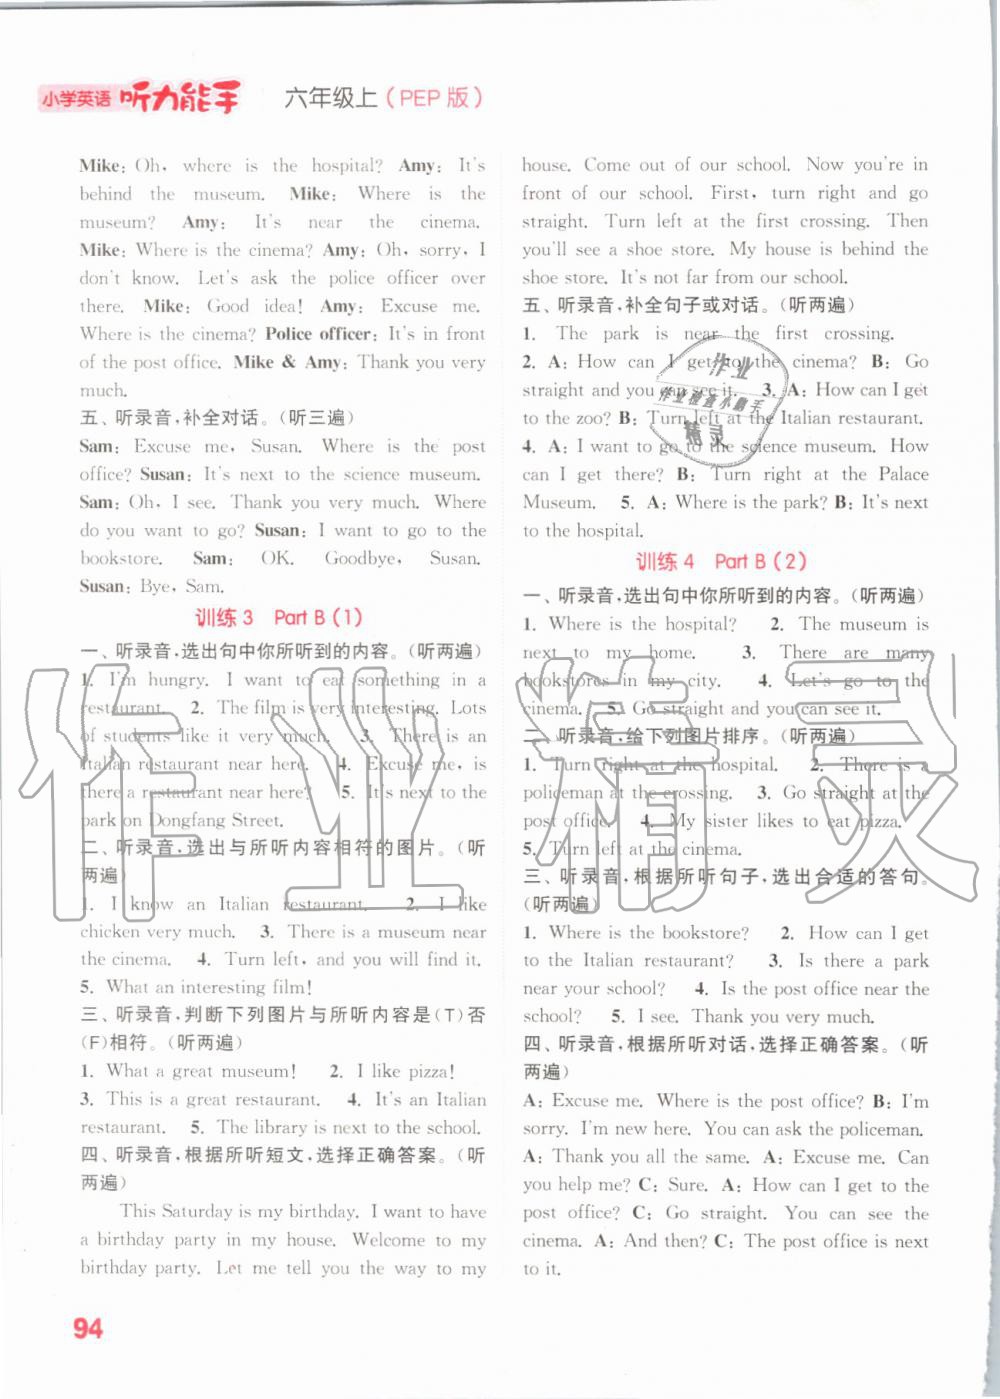 小学英语 听力能手 六年级上(PEP版)
Mike: Oh, where is the hospital? Amy: It's
behind the museum. Mike: Where is the
museum? Amy: It's near the cinema.
Mike: Where is the cinema? Amy: Oh, sorry, I
don't know. Let's ask the police officer over
there. Mike: Good idea! Amy: Excuse me.
Where is the cinema? Police officer: It's in front
of the post office. Mike & Amy: Thank you very
much.
五、听录音,补全对话。(听三遍)
Sam: Excuse me, Susan. Where is the post
office? Susan: It's next to the science museum.
Sam: Oh, I see. Thank you very much. Where
do you want to go? Susan: I want to go to the
bookstore. Sam: OK. Goodbye, Susan.
Susan: Bye, Sam.
训练3 Part B(1)
一、听录音,选出句中你所听到的内容。(听两遍)
1. I'm hungry. I want to eat something in a
restaurant. 2. The film is very interesting. Lots
of students like it very much. 3. There is an
Italian restaurant near here. 4. Excuse me, is
there a restaurant near here? 5. It's next to the
park on Dongfang Street.
二、听录音,选出与所听内容相符的图片。(听
两遍)
1. I know an Italian restaurant. 2. I like
chicken very much. 3. There is a museum near
the cinema. 4. Turn left, and you will find it.
5. What an interesting film!
三、听录音,判断下列图片与所听内容是(T)否
(F)相符。(听两遍)
1. What a great museum! 2. I like pizza!
3. This is a great restaurant. 4. It's an Italian
restaurant. 5. The library is next to the school.
四、听录音,根据所听短文,选择正确答案。(听
两遍)
This Saturday is my birthday. I want to have
a birthday party in my house. Welcome to my
birthday party. Let me tell you the way to my
house. Come out of our school. Now you're in
front of our school. First, turn right and go
straight. Turn left at the first crossing. Then
you'll see a shoe store. My house is behind the
shoe store. It's not far from our school.
五、听录音,补全句子或对话。(听两遍)
1. The park is near the first crossing.
2. A: How can I get to the cinema? B: Go
straight and you can see it. 3. A: How can I get
to the zoo? B: Turn left at the Italian restaurant.
4. A: I want to go to the science museum. How
can I get there? B: Turn right at the Palace
Museum. 5. A: Where is the park? B: It's next
to the hospital.
训练4 Part B(2)
一、听录音,选出句中你所听到的内容。(听两遍)
1. Where is the hospital? 2. The museum is
next to my home. 3. There are many
bookstores in my city. 4. Let's go to the
cinema. 5. Go straight and you can see it.
二、听录音,给下列图片排序。(听两遍)
1. Turn right at the hospital. 2. There is a
policeman at the crossing. 3. Go straight at the
post office. 4. My sister likes to eat pizza.
5. Turn left at the cinema.
三、听录音,根据所听句子,选出合适的答句。
(听两遍)
1. Where is the bookstore? 2. How can I get
to the Italian restaurant? 3. Is there a park
near your school? 4. Is the post office near the
school? 5. I see. Thank you very much.
四、听录音,根据所听对话,选择正确答案。(听
两遍)
A: Excuse me. Where is the post office? B: I'm
sorry. I'm new here. You can ask the policeman.
A: Thank you all the same. A: Excuse me. Can
you help me? C: Sure. A: How can I get to the
post office? C: Go straight. You can see the
cinema. A: And then? C: The post office is next
to it.
作业
作业检查小助手
精灵
作业精灵
94